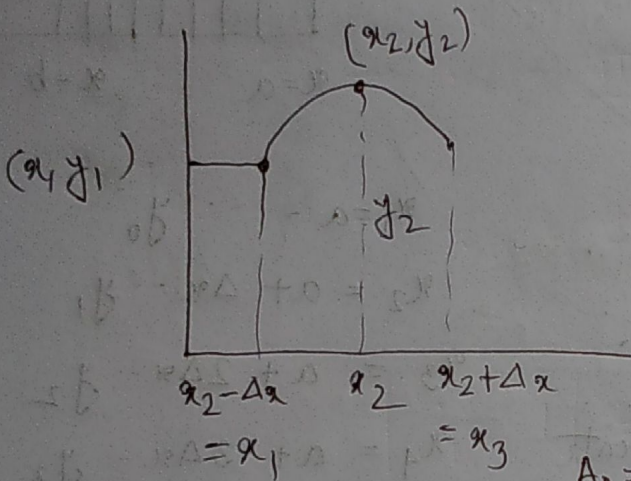 (x₂, y₂)
(x₁ y₁)
y₂
x₂-Δx x₂ x₂+Δx
= x₁ = x₃